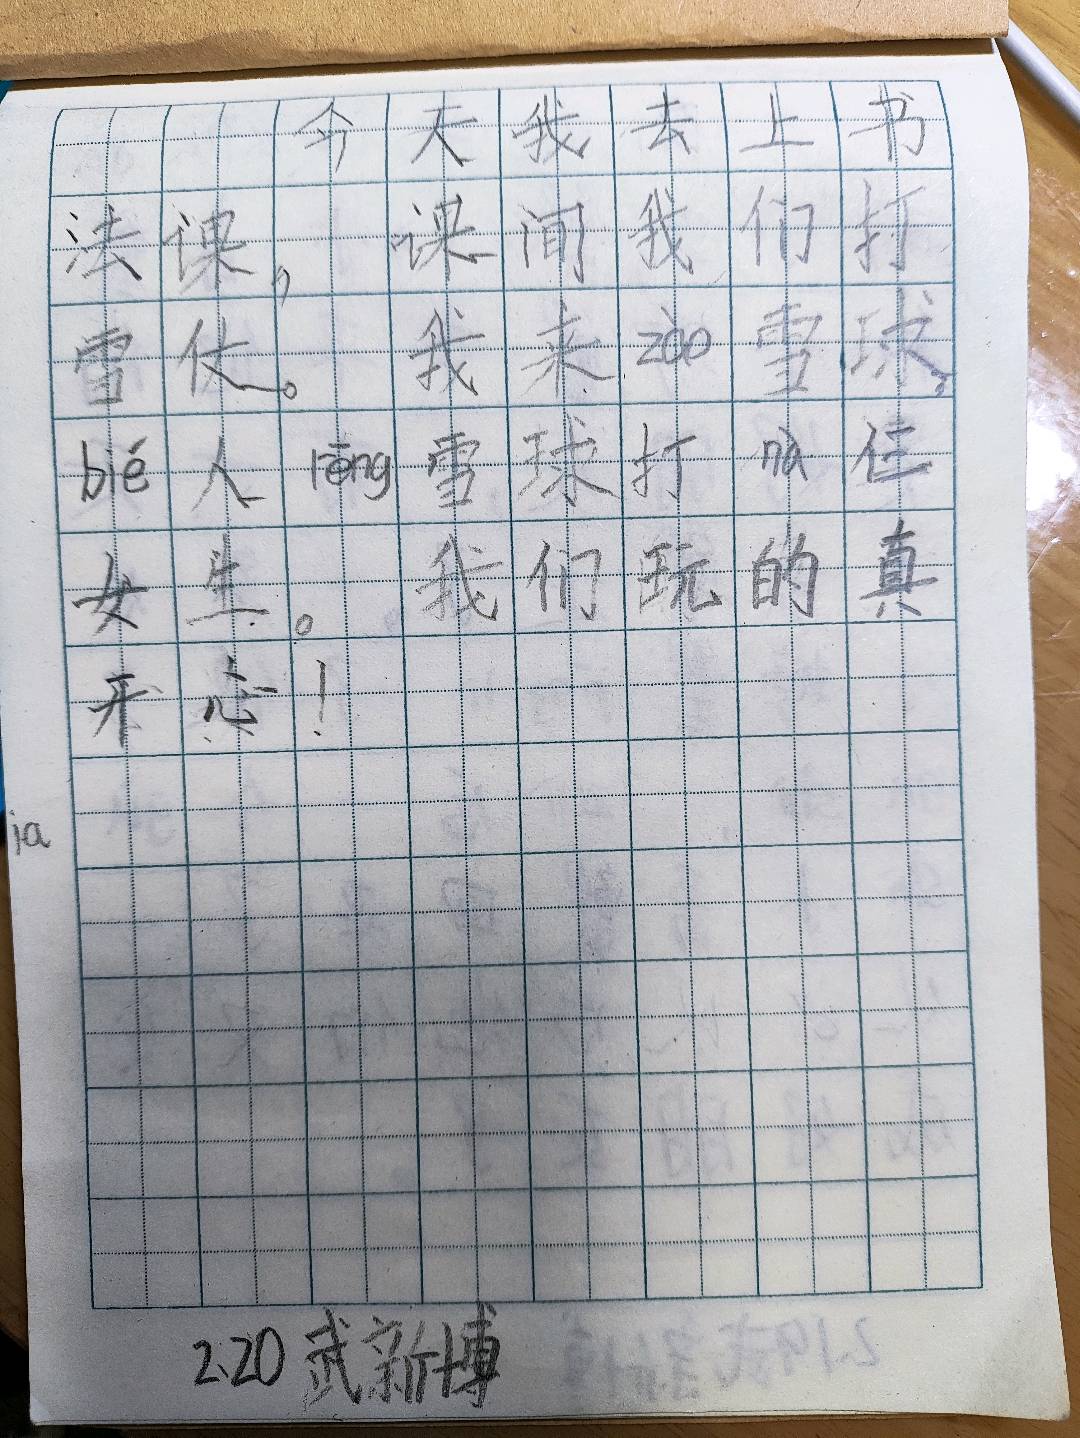 今天我去上书
法课，课间我们打
雪仗。我来zào雪球。
bié人rēng雪球打nà仨
女生。我们玩的真
开心！
ia
2.20武新博
2.19武新博